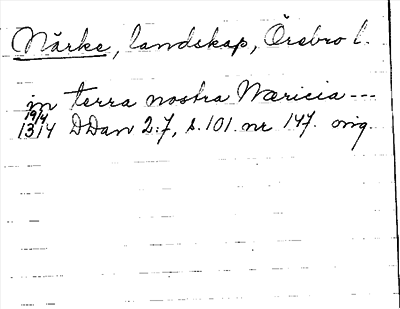 Närke, landskap, Örebro l.
in terra nostra Næricia ---
19/4
1314 DDan 2:7, s. 101. nr 147. orig.